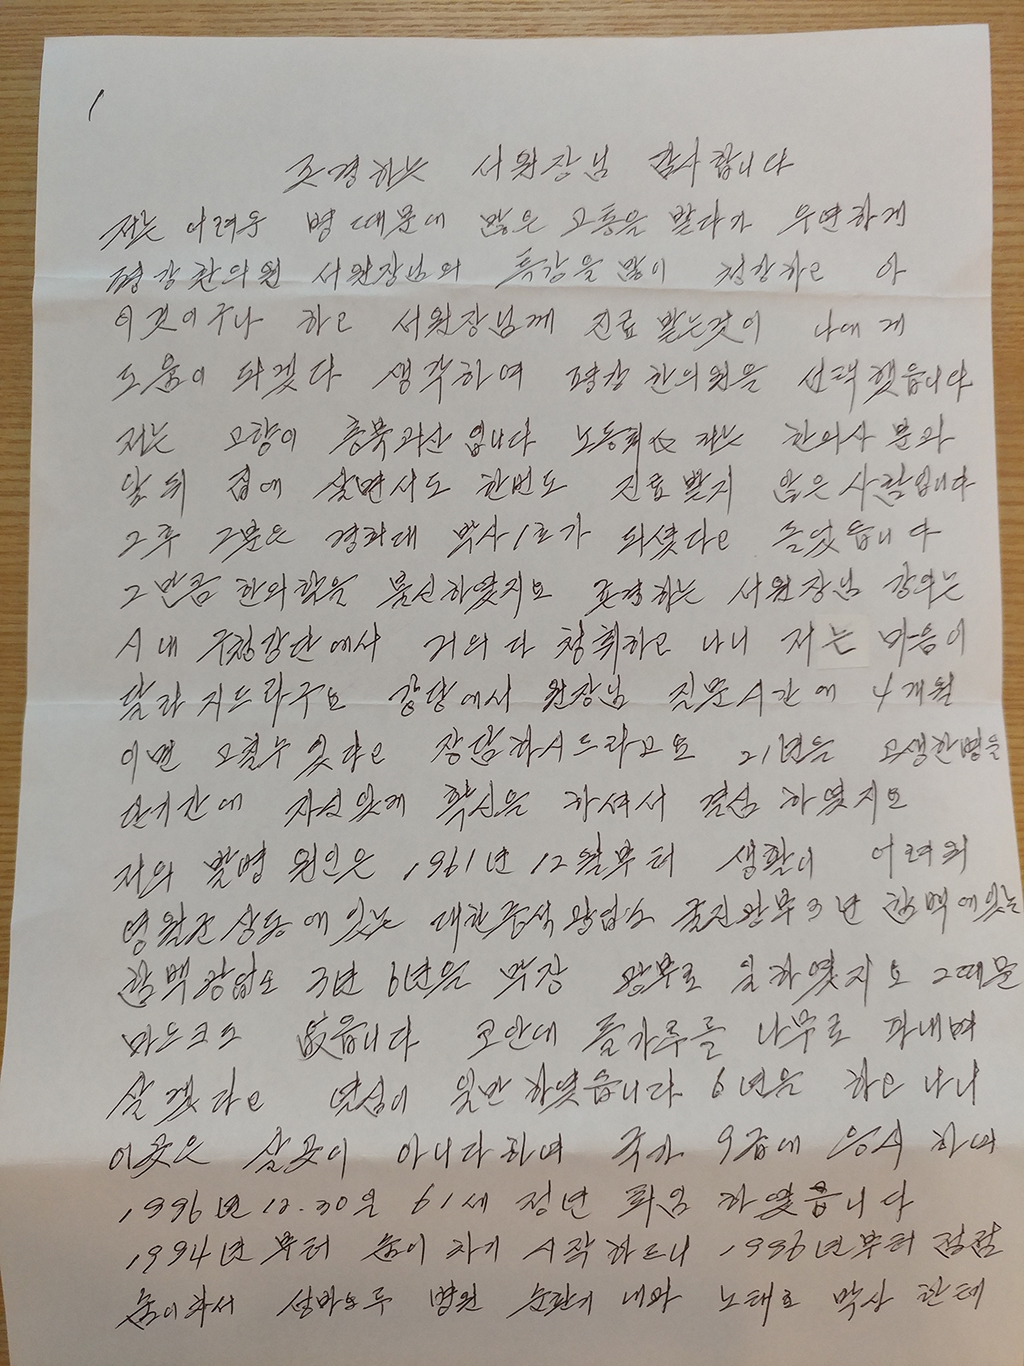 1
존경하는 서원장님 감사합니다
저는 어려운 병 때문에 많은 고통을 받다가 우연하게
평강한의원 서원장님의 특강을 많이 청강하고 아
이것이구나 하고 서원장님께 진료 받는것이 나에게
도움이 되겠다 생각하여 평강 한의원을 선택했읍니다
저는 고향이 충북괴산 입니다 저는 한의사 분과
앞뒤 집에 살면서도 한번도 진료 받지 않은 사람입니다
그후 그분은 경희대 박사1호가 되셨다고 들었읍니다
그만큼 한의학을 불신하였지요 존경하는 서원장님 강의는
시내 구청강단에서 거의 다 청취하고 나니 저는 마음이
달라 지드라구요 강당에서 원장님 질문시간에 4개월
이면 고칠수있다고 장담하시드라고요 21년을 고생한병을
단기간에 자신있게 확신을 하셔서 결심 하였지요
저의 발병 원인은 1961년 12월부터 생활이 어려워
영월군상동에있는 대한중석광업소 굴진광부3년 함백에있는
함백광업소 3년 6년을 막장 광부로 일하였지요 그때는
마스크도 없읍니다 코안에 돌가루를 나무로 파내며
살겠다고 열심이 일만 하였습니다 6년을 하고 나니
이곳은 살곳이 아니다하며 국가 9급에 응시 하여
1996년 12.30일 61세 정년 퇴임 하였습니다
1994년 부터 숨이 차기 시작하드니 1996년부터 점점
숨이차서 성바오로 병원 순환기 내과 노태호 박사 한테